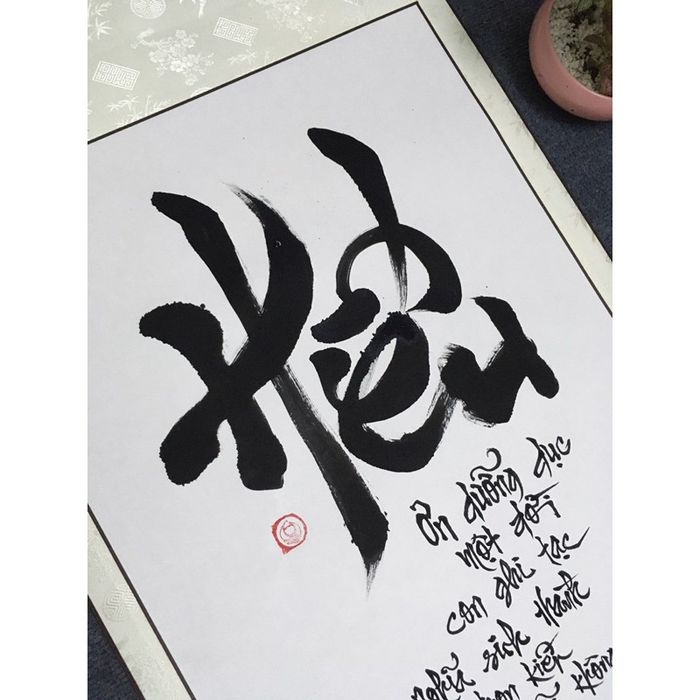 Hiếu
Ơn dưỡng dục
một đời
con ghi tạc
nghĩa sinh thành
kiếp
không